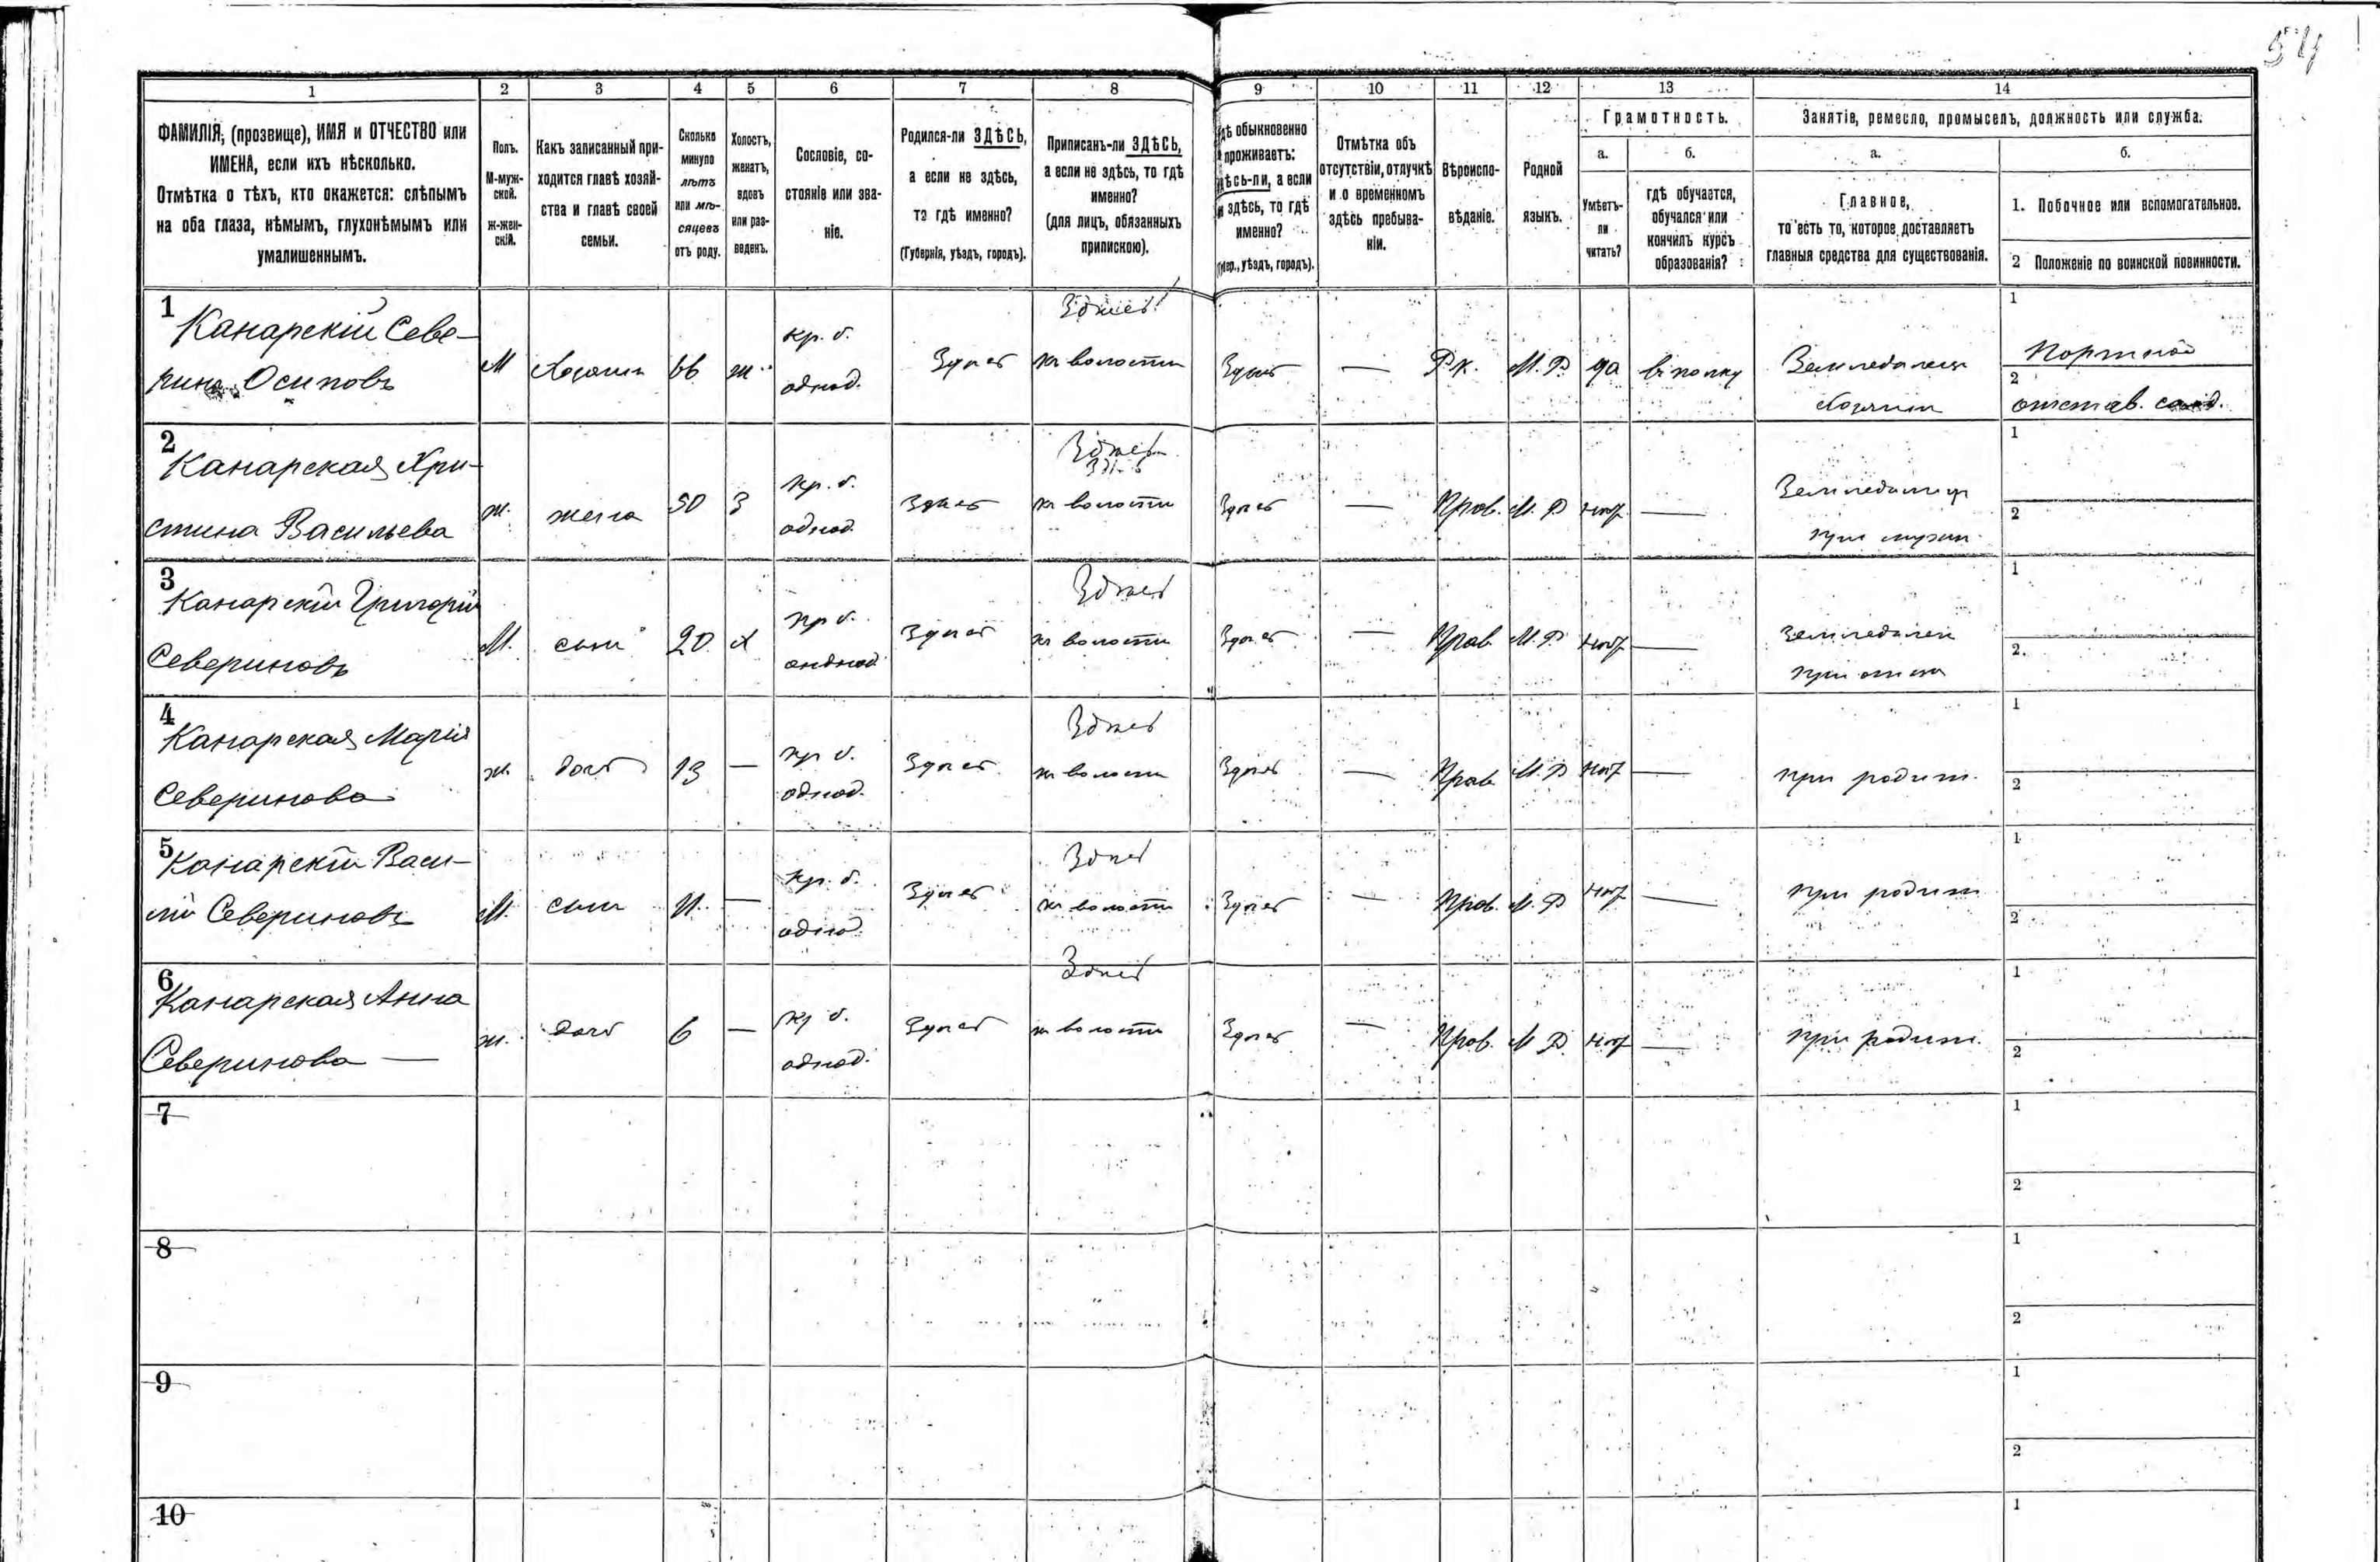 54
1 2 3 4 5 6 7 8 9 10 11 12 13 14
ФАМИЛІЯ, (прозвище), ИМЯ и ОТЧЕСТВО или
ИМЕНА, если ихъ нѣсколько.
Отмѣтка о тѣхъ, кто окажется: слѣпымъ
на оба глаза, нѣмымъ, глухонѣмымъ или
умалишеннымъ.
Полъ.
М-муж-
ской.
Ж-жен-
скій.
Какъ записанный при-
ходится главѣ хозяй-
ства и главѣ своей
семьи.
Сколько
минуло
лѣтъ
или мѣ-
сяцевъ
отъ роду.
Холостъ,
женатъ,
вдовъ
или раз-
веденъ.
Сословіе, со-
стояніе или зва-
ніе.
Родился-ли ЗДѢСЬ,
а если не здѣсь,
то гдѣ именно?
(Губернія, уѣздъ, городъ).
Приписанъ-ли ЗДѢСЬ,
а если не здѣсь, то гдѣ
именно?
(для лицъ, обязанныхъ
припискою).
гдѣ обыкновенно
проживаетъ:
здѣсь-ли, а если
не здѣсь, то гдѣ
именно?
(губер., уѣздъ, городъ).
Отмѣтка объ
отсутствіи, отлучкѣ
и о временномъ
здѣсь пребыва-
ніи.
Вѣроиспо-
вѣданіе.
Родной
языкъ.
Грамотность.
а.
Умѣетъ-
ли
читать?
б.
гдѣ обучается,
обучался или
кончилъ курсъ
образованія?
Занятіе, ремесло, промыселъ, должность или служба.
а.
Главное,
то есть то, которое доставляетъ
главныя средства для существованія.
б.
1. Побочное или вспомогательное.
2 Положеніе по воинской повинности.
1
Канарскій Севе-
ринъ Осиповъ
М
Хозяинъ
66
ж.
кр. б.
однод.
Здѣсь
Здѣсь
къ волости
Здѣсь
—
Р.К.
М.Р.
да
въ полку
Земледѣлецъ
хозяинъ
1
Портной
2
отстав. солд.
2
Канарская Хри-
стина Васильева
ж.
жена
50
З
кр. б.
однод.
Здѣсь
Здѣсь
къ волости
Здѣсь
—
Прав.
М. Р
нѣт
—
при мужи
1
2
3
Канарскій Григорій
Севериновъ
М.
сынъ
20
Х
кр б.
однод
Здѣсь
Здѣсь
къ волости
Здѣсь
—
Прав.
М. Р
нѣт
—
Земледѣлец
при отцѣ
1
2.
4
Канарская Марія
Северинова
ж.
дочь
13
—
кр б.
однод.
Здѣсь
Здѣсь
къ волости
Здѣсь
—
Прав.
М. Р
нѣт
—
при родит.
1
2
5
Канарскій Васи-
лій Севериновъ
М.
сынъ
11.
—
кр. б.
однод.
Здѣсь
Здѣсь
къ волости
Здѣсь
—
Прав.
М. Р
нѣт
—
при родит
1
2
6
Канарская Анна
Северинова —
ж.
дочь
6
—
кр б.
однод.
Здѣсь
Здѣсь
къ волости
Здѣсь
—
Прав.
М Р.
нѣт
—
при родит.
1
2
7
1
2
8
1
2
9
1
2
10
1